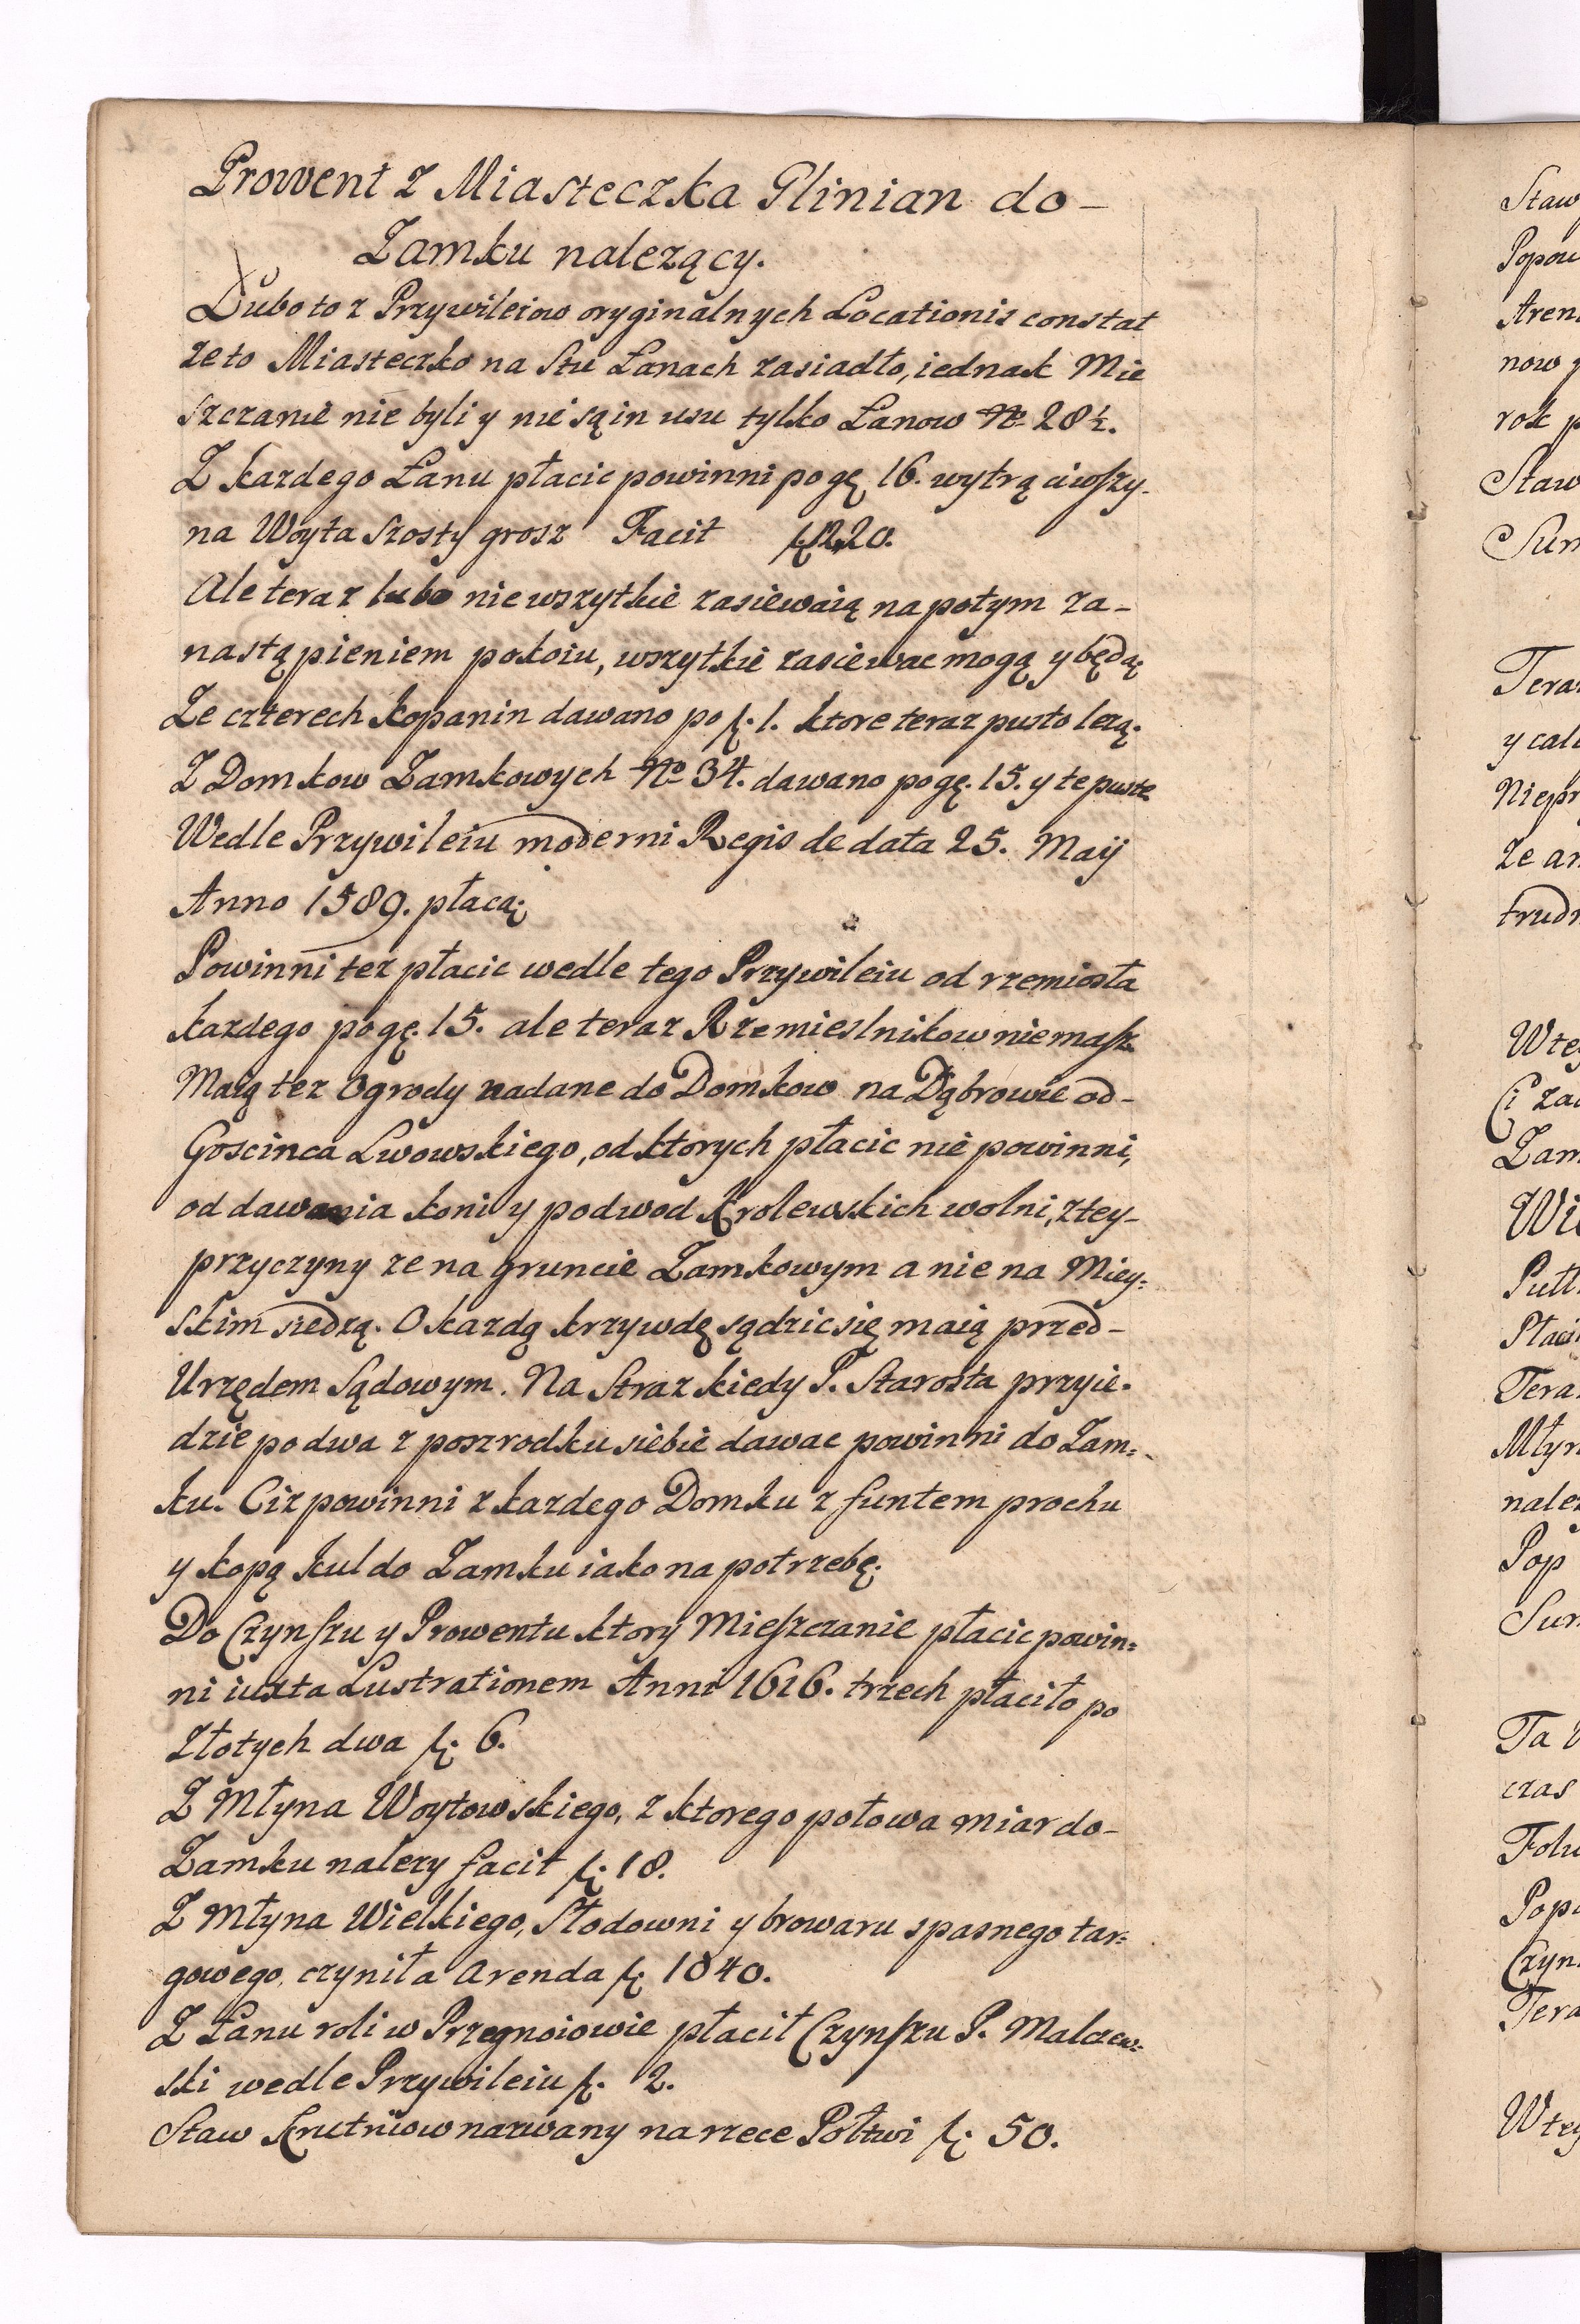 Prowent z Miasteczka Glinian do-
Zamku nalezący.
Lubo to z Przywileiow oryginalnych Locationis constat
ze to Miasteczko na Stu Łanach zasiadło, iednak Mie
szczanie nie byli y nie są in usu tylko Łanow No 28½.
Z kazdego Łanu płacic powinni po gę 16. wytrąciwszy-
na Woyta szosty grosz Facit f. 12,20.
Ale teraz lubo nie wszytkie zasiewaią na potym za-
nastąpieniem pokoiu, wszytkie zasiewac mogą y będą.
Ze czterech kopanin dawano po f. 1. ktore teraz pusto lezą.
Z Domkow Zamkowych No 34. dawano po gę. 15. y te puste
Wedle Przywileiu moderni Regis de data 25. Maij
Anno 1589. płacą.
Powinni tez płacic wedle tego Przywileiu od rzemiosła
kazdego po gę. 15. ale teraz Rzemieslnikow niemasz
Maią tez Ogrody nadane do Domkow na Dąbrowie od-
Goscinca Lwowskiego, od ktorych płacic nie powinni,
od dawania koni y podwod Krolewskich wolni, z tey-
przyczyny ze na gruncie Zamkowym a nie na Miey:
skim siedzą. O kazdą krzywdę sądzic się maią przed-
Urzędem Sądowym. Na Straz kiedy P. Starosta przyie-
dzie po dwa z poszrodku siebie dawac powinni do Zam:
ku. Ciz powinni z kazdego Domku z funtem prochu
y kopą kul do Zamku iako na potrzebę.
Do Czynszu y Prowentu ktory Mieszczanie płacic powin:
ni iuxta Lustrationem Anni 1616. trzech płaciło po
złotych dwa f. 6.
Z Młyna Woytowskiego, z ktorego połowa miar do-
Zamku nalezy facit f. 18.
Z Młyna Wielkiego, Słodowni y browaru spasnego tar:
gowego, czyniła Arenda f. 1040.
Z Łanu roli w Przegnoiowie płacił Czynszu P. Malczew:
ski wedle Przywileiu f. 2.
Staw Krutniow nazwany na rzece Połtwi f. 50.
Staw
now
rok
Staw
czas